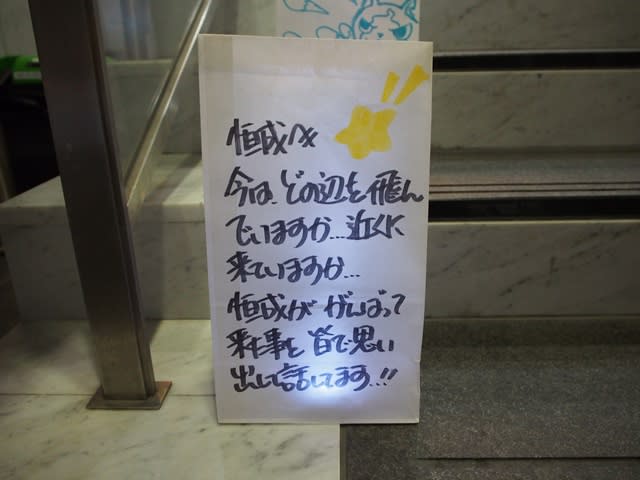 恒成へ
今は、どの辺を飛ん
でいますか…近くに
来ていますか…
恒成が がんばって
来た事を 皆で思い
出して話してます…!!